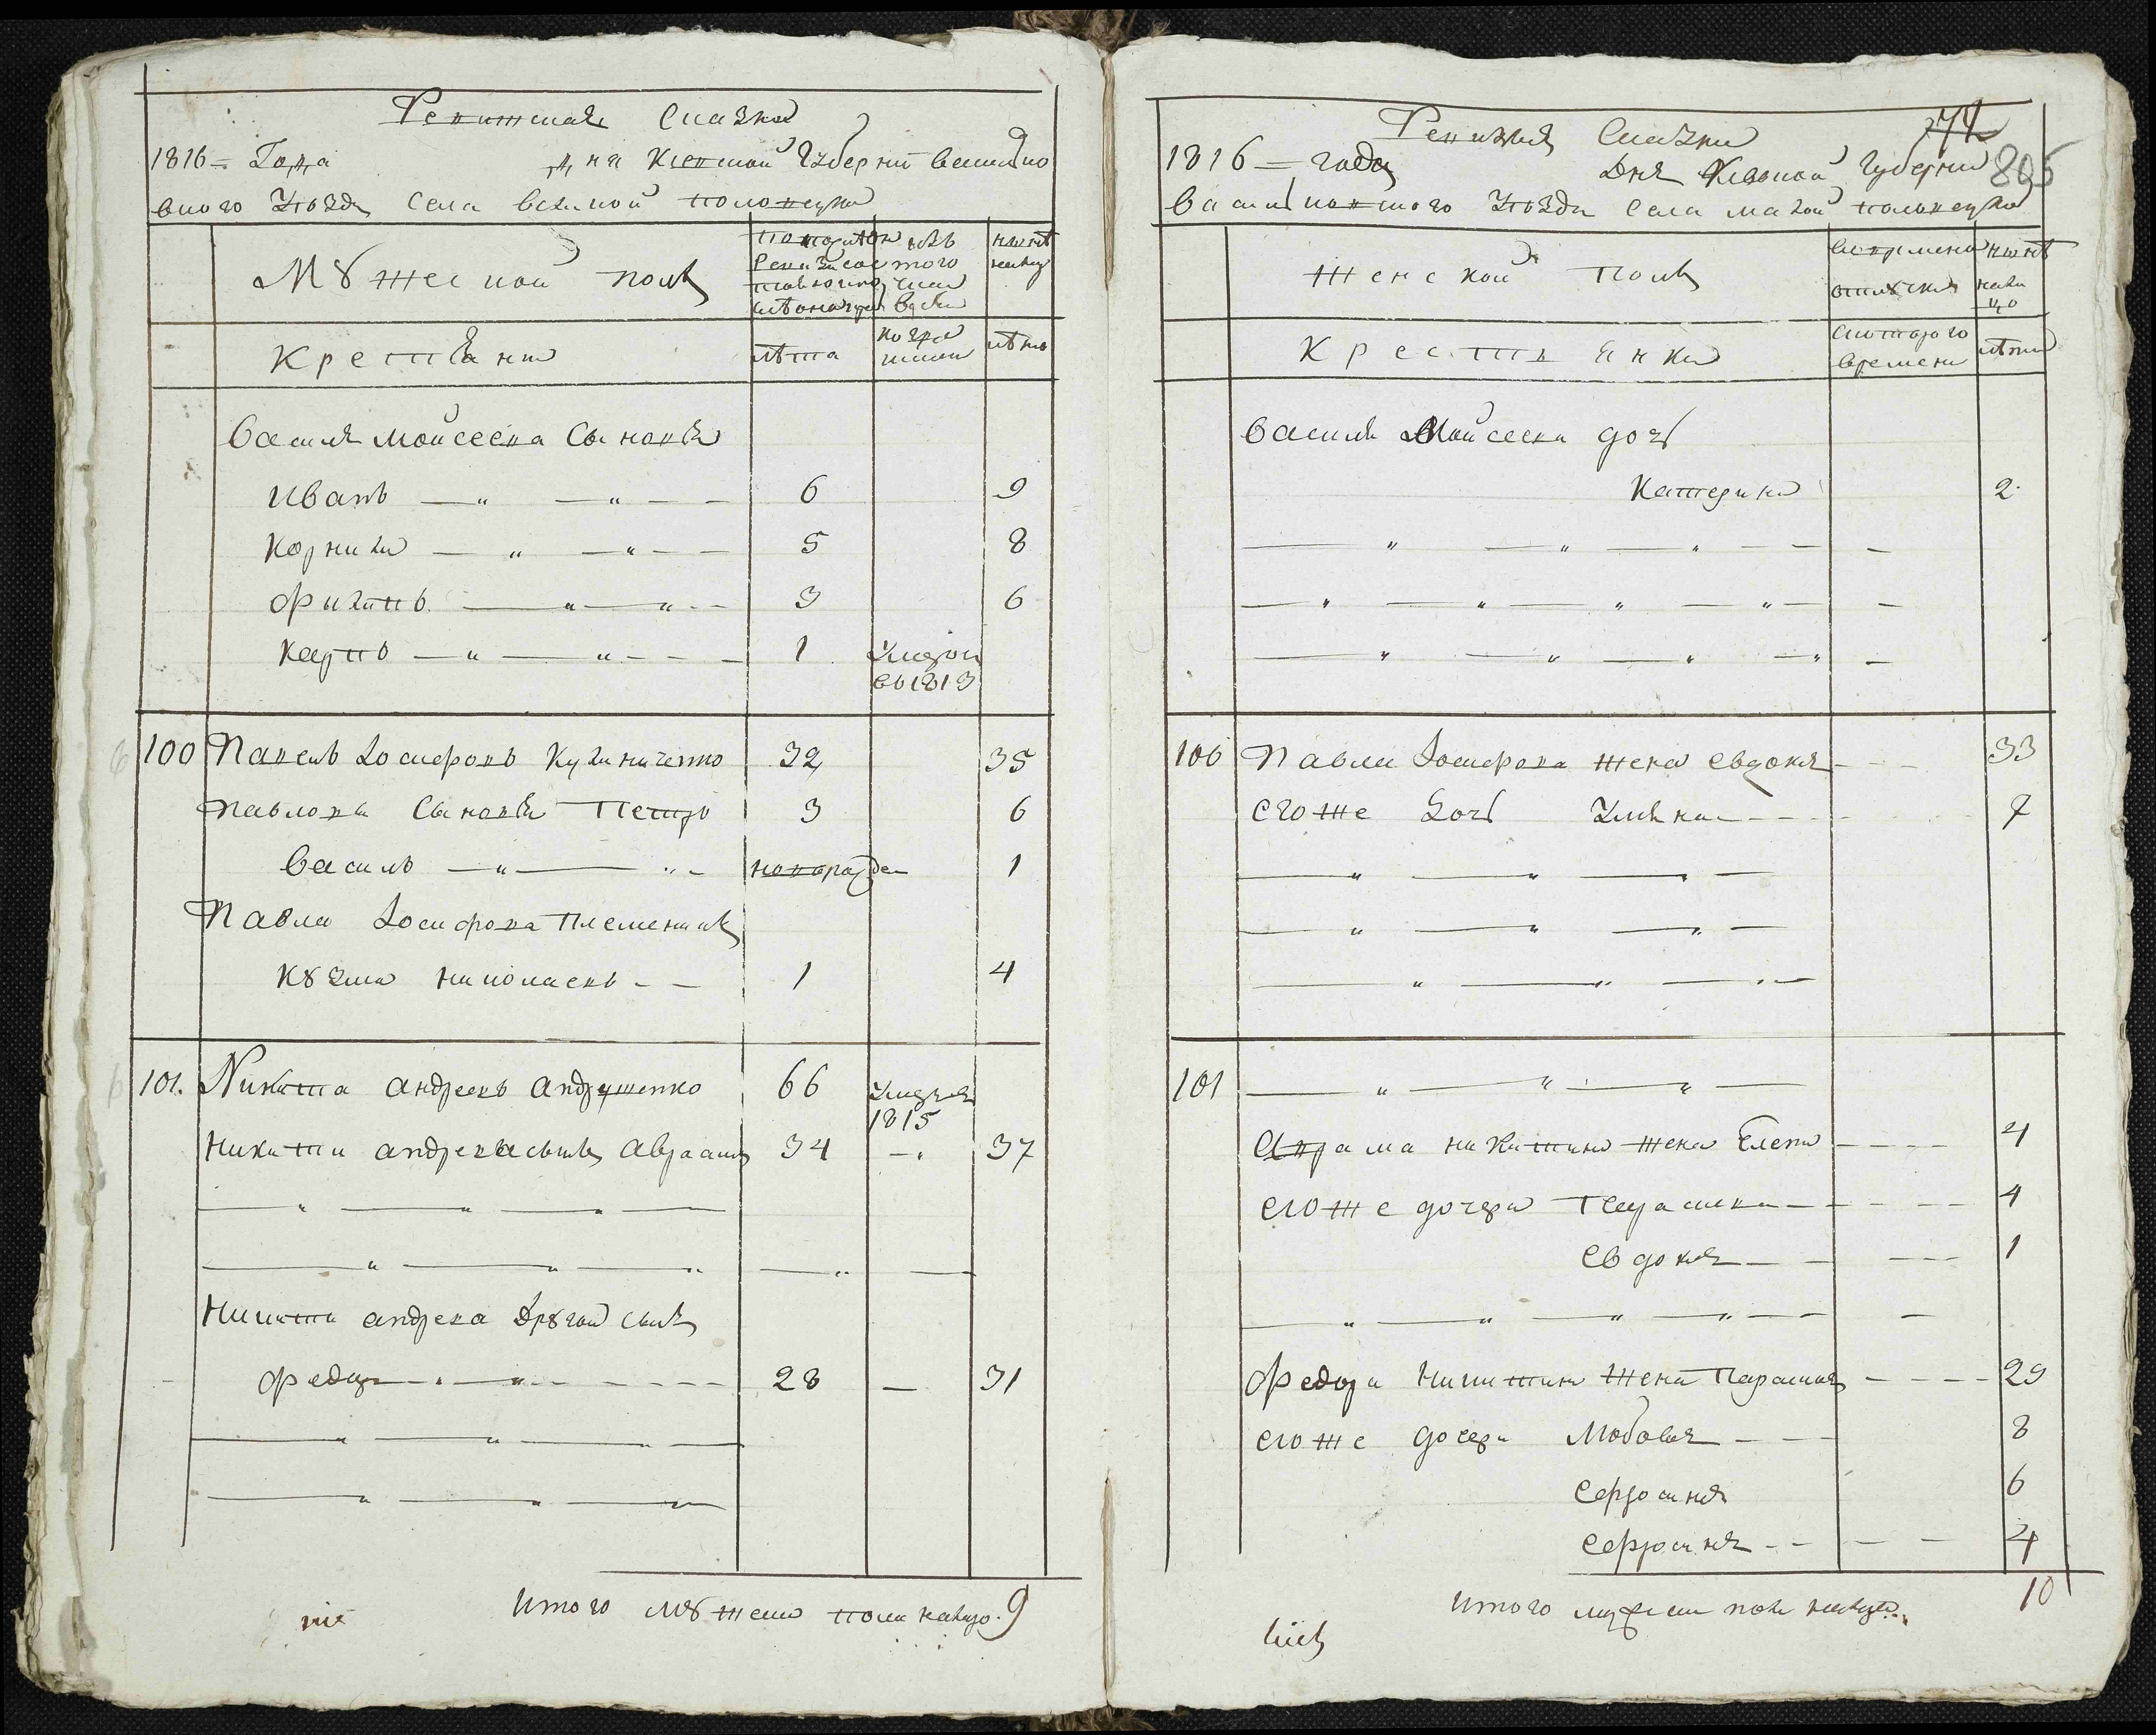 Ревижская Сказка
1816 = Года дня Киевской Губернїи василко
вского Уѣзда села великой половецкой
Мужеской полъ
по последней ревизїи состояло и лѣто
изъ того числа выбыло
нынѣ налицо
Крестьяни
лѣта
когда имянно
лѣта
Василя Мойсеева Сыновья
Иванъ 6 9
Корнило 5 8
Филипъ 3 6
Карпъ 1 умеръ
въ 1813
100 Павелъ Іосифовъ Кулиниченко 32 35
Павлови Сыновья Петръ 3 6
Василь новорожден 1
Павла Іосифова племенникъ
Кузма николаевъ 1 4
101. Никита андреевъ андрущенко 66 умре
1815
Никити андреева сынъ Авраамъ 34 37
Никити андреева другой сынъ
Федор 28 31
Итого мужеска пола налицо. 9
1816 = года Дня Киевской Губернїи
васильковского Уѣзда села малой половецкой
274
805
Женской Полъ
во временной отлучки
нынѣ налицо
Крестьянки
съ которого времени
лѣта
Василя Мойсеева дочь
Катерина 2
100 Павла Іосифова жена Евдокия 33
его же дочь Уляна 7
101
Аврама никитина жена Елена 4
его же дочери Параскева 4
Евдокия 1
Федора никитина жена Параския 29
его же дочери Любовия 8
Ефросиния 6
Ефросиния 4
Итого женска пола налицо 10